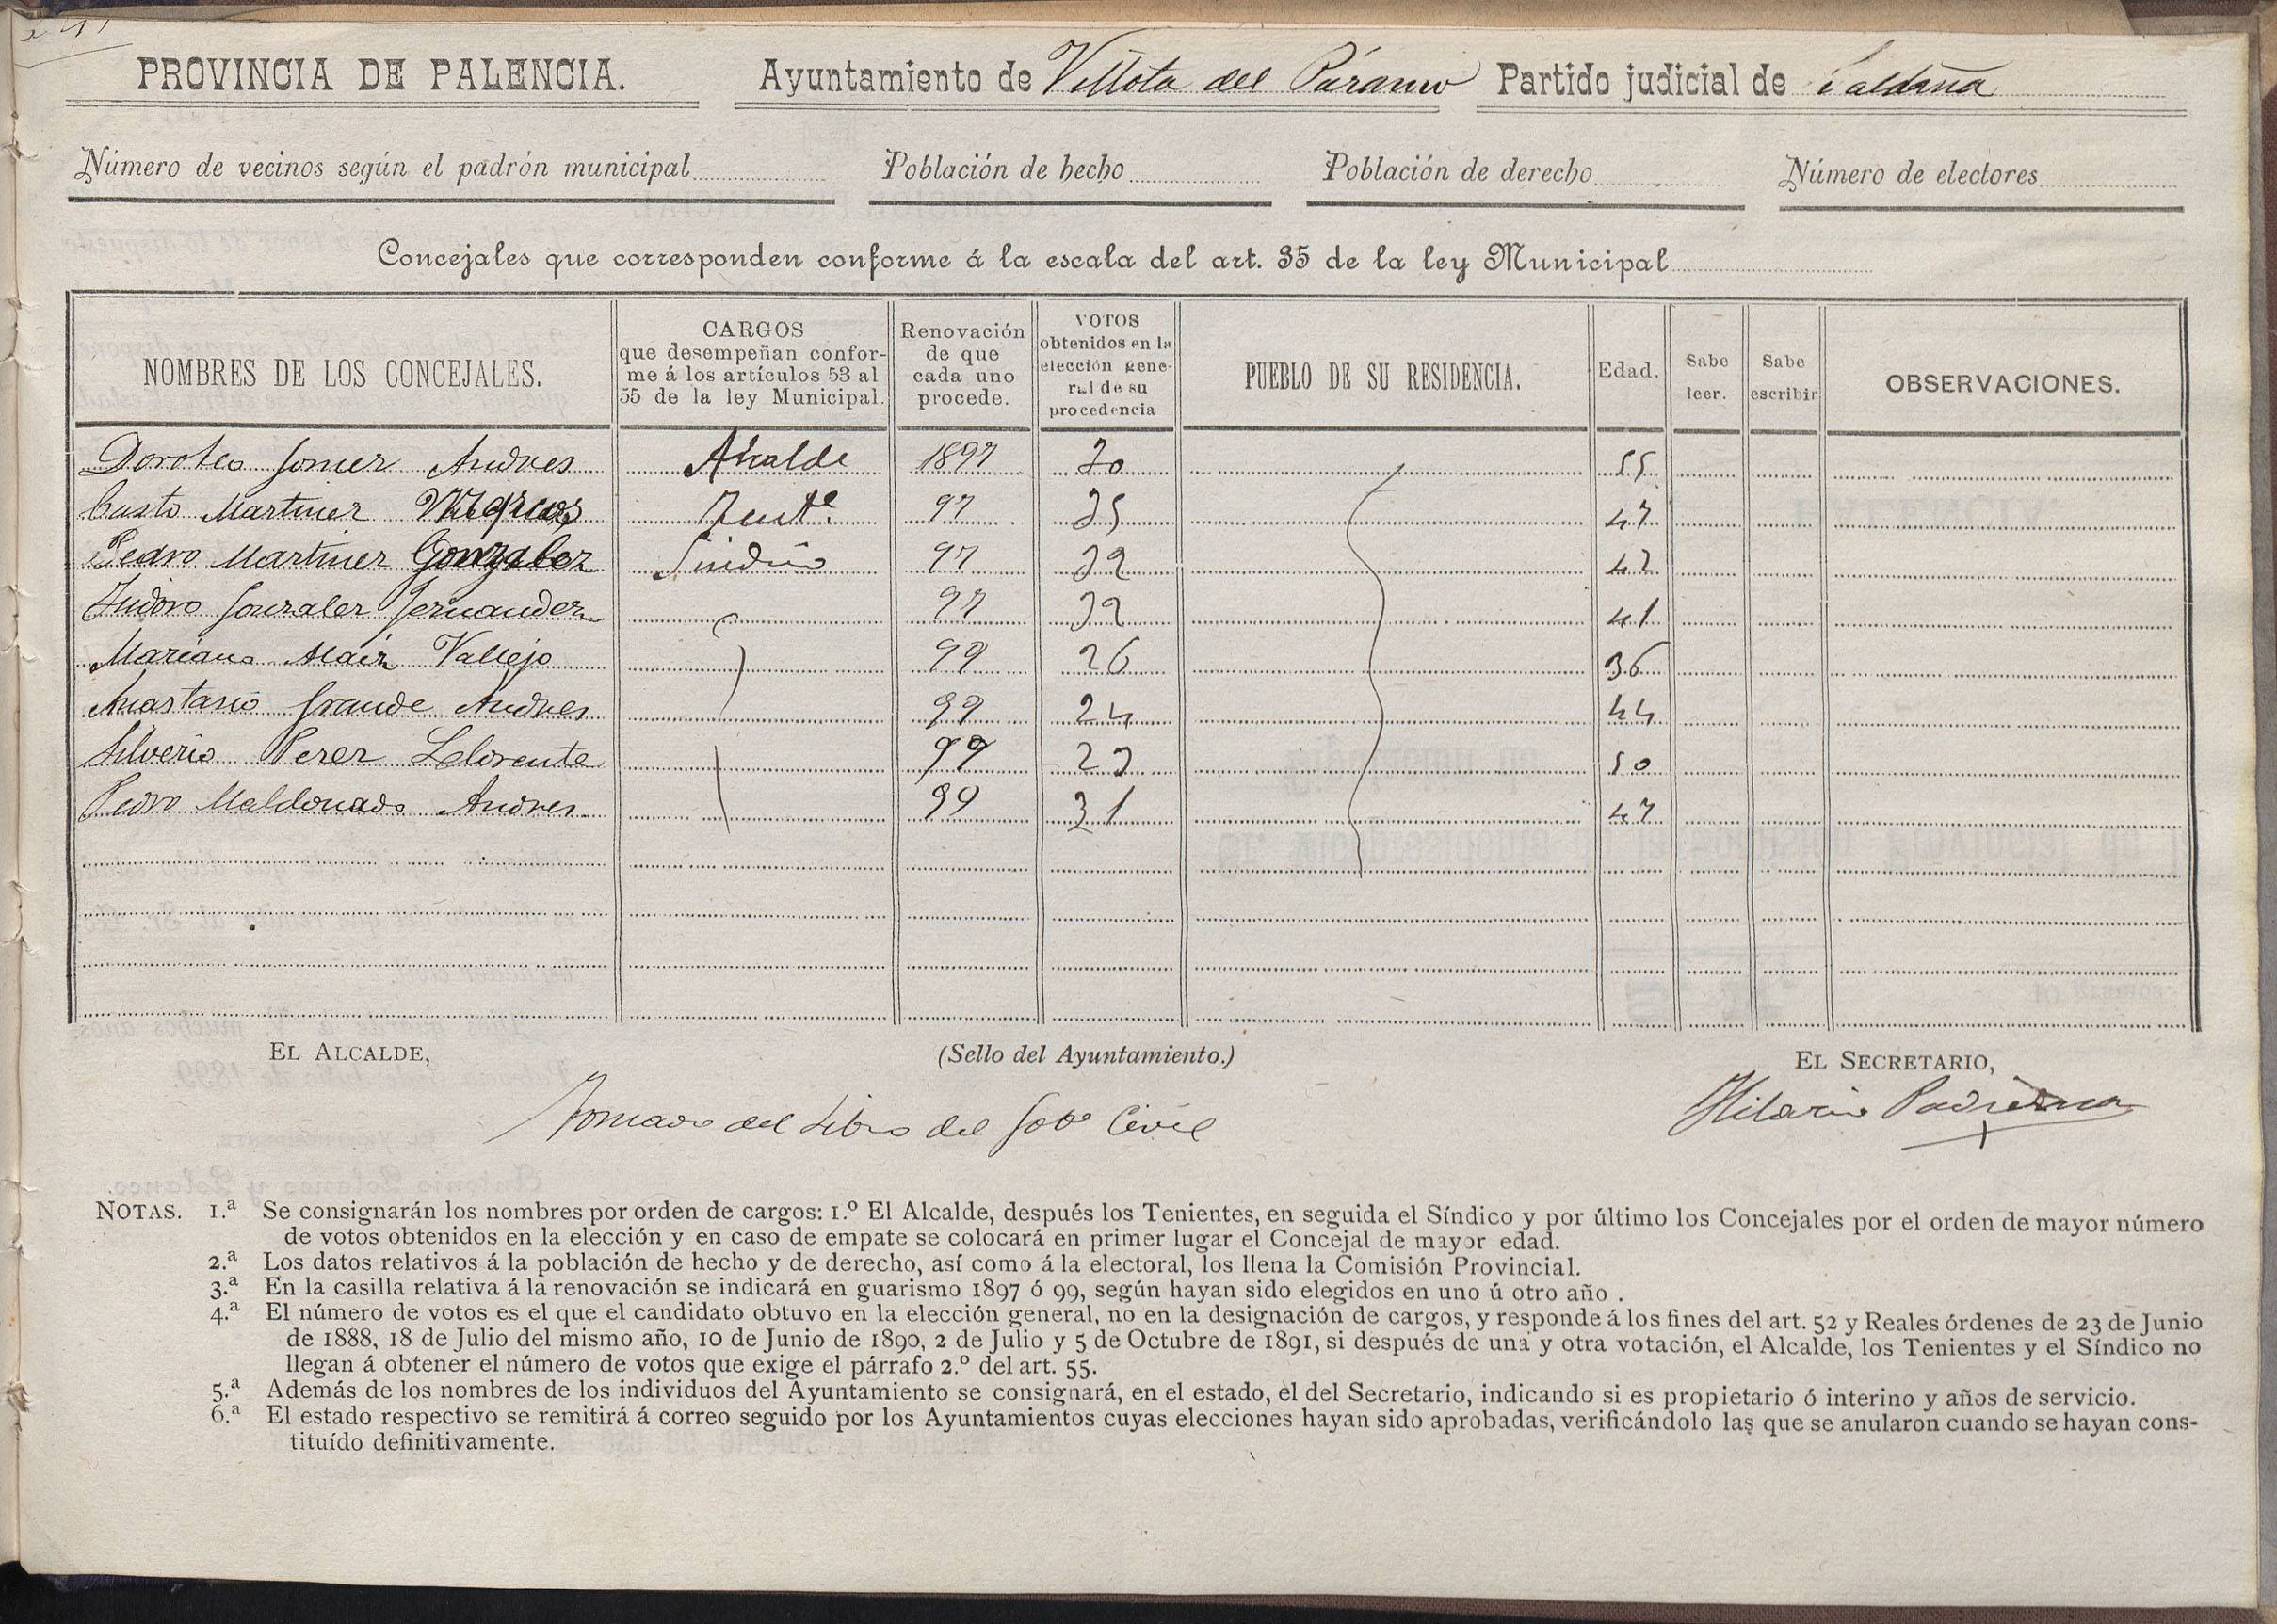 PROVINCIA DE PALENCIA. Ayuntamiento de Villota del Páramo Partido judicial de Saldaña
Número de vecinos según el padrón municipal Población de hecho Población de derecho Número de electores
Concejales que corresponden conforme á la escala del art. 35 de la ley Municipal
NOMBRES DE LOS CONCEJALES.
CARGOS
que desempeñan confor-
me á los artículos 53 al
55 de la ley Municipal.
Renovación
de que
cada uno
procede.
VOTOS
obtenidos en la
elección gene-
ral de su
procedencia
PUEBLO DE SU RESIDENCIA.
Edad.
Sabe
leer.
Sabe
escribir
OBSERVACIONES.
Doroteo Gomez Andres Alcalde 1897 30 55
Casto Martinez 97 35 47
Pedro Martinez Gonzalez Sindico 97 32 42
Isidoro Gonzalez Fernandez 97 32 41
Mariano Alaiz Vallejo 99 26 36
Anastasio Grande Andres 99 24 44
Silverio Perez Llorente 99 23 50
Pedro Maldonado Andres 99 31 47
EL ALCALDE, (Sello del Ayuntamiento.) EL SECRETARIO,
Tomado del Libro del Gobº Civil Hilario Padierna
NOTAS. 1.ª Se consignarán los nombres por orden de cargos: 1.º El Alcalde, después los Tenientes, en seguida el Síndico y por último los Concejales por el orden de mayor número
de votos obtenidos en la elección y en caso de empate se colocará en primer lugar el Concejal de mayor edad.
2.ª Los datos relativos á la población de hecho y de derecho, así como á la electoral, los llena la Comisión Provincial.
3.ª En la casilla relativa á la renovación se indicará en guarismo 1897 ó 99, según hayan sido elegidos en uno ú otro año .
4.ª El número de votos es el que el candidato obtuvo en la elección general, no en la designación de cargos, y responde á los fines del art. 52 y Reales órdenes de 23 de Junio
de 1888, 18 de Julio del mismo año, 10 de Junio de 1890, 2 de Julio y 5 de Octubre de 1891, si después de una y otra votación, el Alcalde, los Tenientes y el Síndico no
llegan á obtener el número de votos que exige el párrafo 2.º del art. 55.
5.ª Además de los nombres de los individuos del Ayuntamiento se consignará, en el estado, el del Secretario, indicando si es propietario ó interino y años de servicio.
6.ª El estado respectivo se remitirá á correo seguido por los Ayuntamientos cuyas elecciones hayan sido aprobadas, verificándolo las que se anularon cuando se hayan cons-
tituído definitivamente.